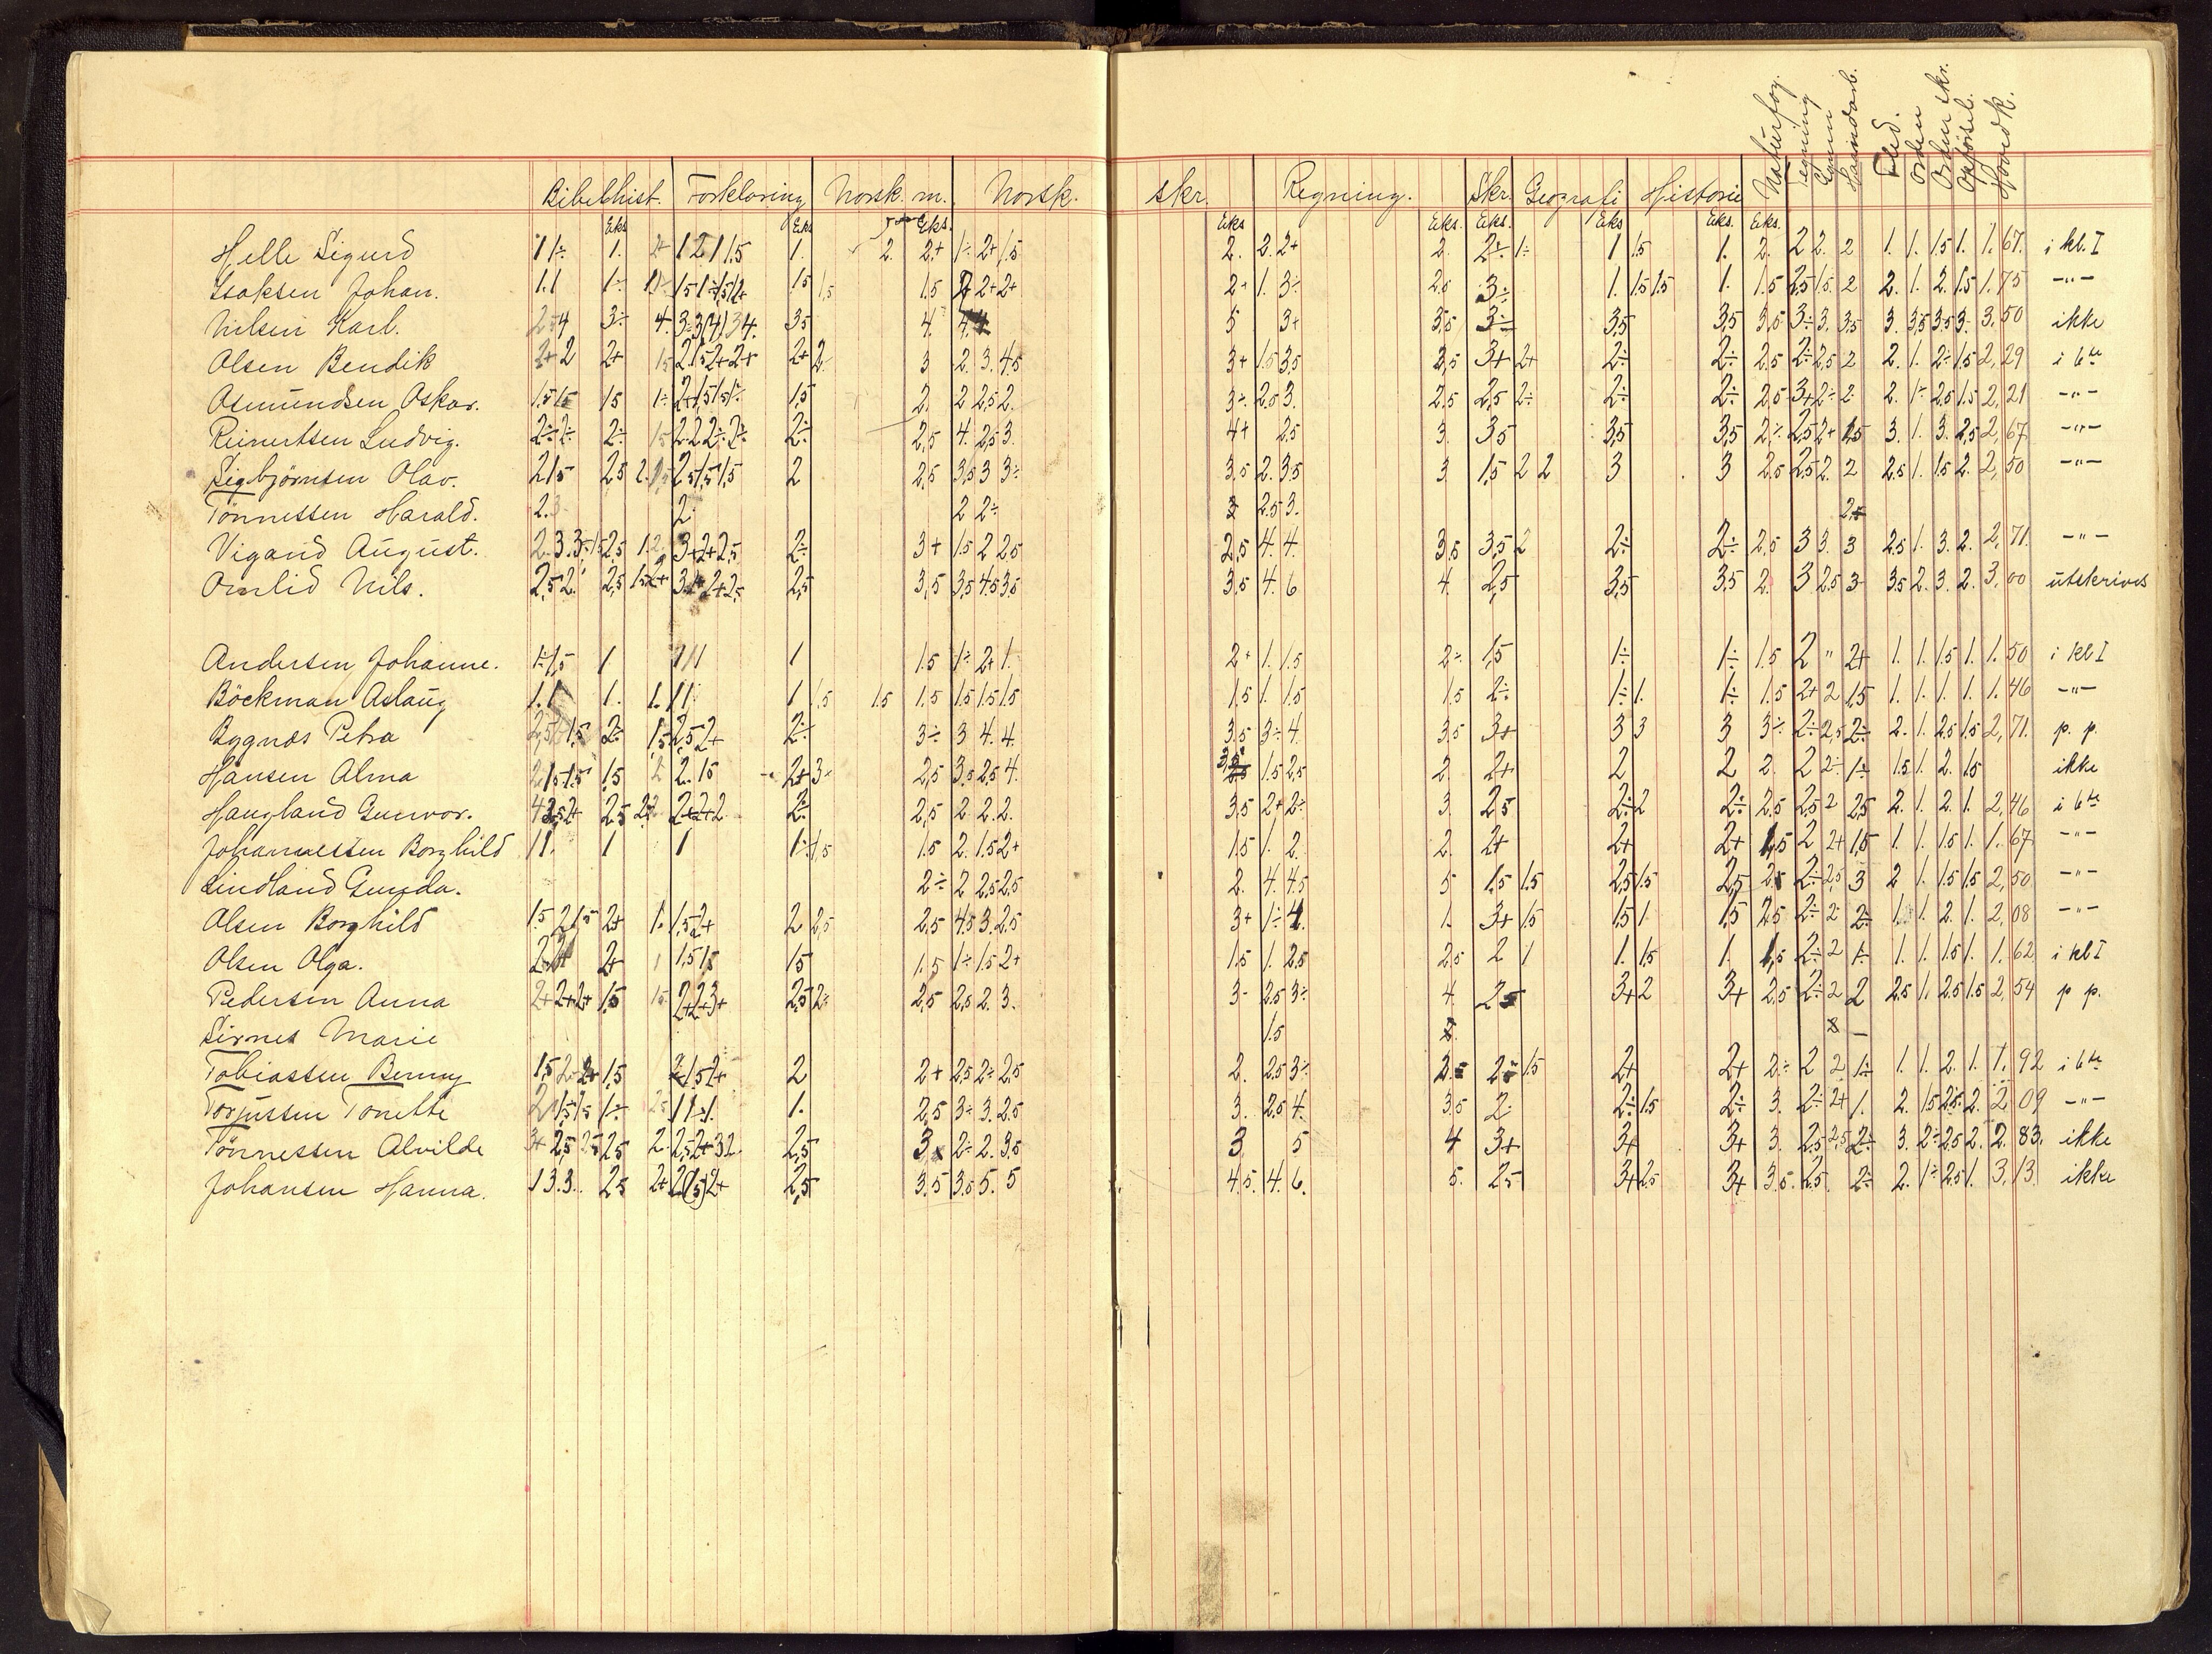 Naturfag. Tegning Gymn Haandarb. Flid. Orden Orden skr. Opförsel. Hovedk.
Bibelhist. Forklaring Norsk. m. Norsk. skr. Regning. Skr. Geografi Historie
Eks Eks Eks. Eks Eks. Eks. Eks Eks. Eks.
Helle Sigurd 1 1÷ 1. 2+ 1 2 1 1.5 1. 2. 2+ 1÷ 2+ 1.5 2. 2. 2+ 2. 2÷ 1÷ 1 1.5 1. 2. 2 2. 2 1. 1. 1.5 1. 1. 67. i kl. I
Isaksen Johan. 1.1 1÷ 1.5 1.5 2+ 2+ 2+ 1. 3÷ 2.5 3÷ 1. 1.5 1.5 1. 1.5 2.5 1.5 2 2. 1. 2. 1.5 1. 75 -"-
Nilsen Karl. 2.5 4 3÷ 4. 3.5 4. 5 3+ 3,5 3÷ 3,5 3,5 3,5 3÷ 3. 3,5 3. 3,5 3,5 3. 3. 50 ikke
Olsen Bendik 2+ 2 2+ 1.5 2+ 2. 3 2. 3. 4.5 3+ 1.5 3,5 2,5 3+ 2+ 2÷ 2÷ 2.5 2÷ 2,5 2 2. 1. 2÷ 1.5 2, 29 i 6te
Asmundsen Oskar. 1.5 1.5 1.5 1÷ 1,5 2. 2 2,5 2. 3÷ 2.5 3. 2,5 2,5 2÷ 2÷ 2÷ 2.5 3+ 2÷ 2 2. 1÷ 2.5 1.5 2, 21 -"-
Reinertsen Ludvig. 2÷ 2÷ 2÷ 1.5 2. 2 2÷ 2÷ 2÷ 2,5 4. 2,5 3. 4+ 2.5 3. 3.5 3,5 3,5 2÷ 2,5 2+ 1,5 3. 1. 3. 2,5 2, 67. -"-
Sigbjörnsen Olav. 2 1.5 2.5 2 2,5 3,5 3 3÷ 3.5 2. 3.5 3 1,5 2 2 3 3 2.5 2.5 2. 2 2.5 1. 1.5 2. 2, 50 -"-
Tönnessen Harald. 2. 2. 2 2÷ 3 2.5 3. 2,5
Vigand August. 2. 3. 3÷ 2,5 1.2 3+ 2+ 2,5 2÷ 3+ 1.5 2 2.5 2,5 4. 4. 3,5 3,5 2 2÷ 2÷ 2,5 3 3. 3 2.5 1. 3. 2. 2, 71. -"-
Omlid Nils. 2,5 2. 2,5 2,5 3,5 3,5 4.5 3.5 3.5 4. 6 4. 2,5 3,5 3.5 2. 3 2.5 3 3.5 2. 3. 2. 3, 00 utskrives
Andersen Johanne. 1÷ 1,5 1 1 1 1 1 1.5 1÷ 2+ 1. 2+ 1. 1.5 2÷ 1,5 1÷ 1÷ 1.5 2 " 2+ 1. 1. 1.5 1. 1. 50 i kl I
Böckman Aslaug 1. 1 1. 1. 1 1 1 1,5 1.5 1.5 1.5 1.5 1.5 1.5 1. 1.5 1.5 2÷ 1÷ 1. 1÷ 1.5 2+ 2 1,5 1. 1. 1. 1. 1. 46 -"-
Bygnæs Petra 2,5 1,5 2÷ 1,5 2,5 2+ 2÷ 3÷ 3 4. 4. 3.5 3÷ 4. 3.5 3+ 3 3 3 3÷ 2÷ 2,5 2÷ 2. 1. 2.5 1.5 2, 71. p. p.
Hansen Alma 2 1.5 1.5 1,5 2 2. 1.5 2+ 3÷ 2,5 3.5 2.5 4. 3,5 1.5 2.5 2. 2+ 2 2 2. 2 2÷ 1÷ 1.5 1. 2. 1.5 ikke
Haugland Gunvor. 2.5 2+ 2+ 2 2÷ 2,5 2. 2. 2. 3.5 2+ 2÷ 3. 2.5 2÷ 2 2÷ 2,5 2,5 2 2,5 2. 1. 2. 1. 2, 46 i 6te
Johannessen Borghild 1 1. 1 1 1÷ 1,5 1.5 2. 1.5 2+ 1.5 1. 2. 2. 2+ 2+ 2+ 1,5 2 2+ 1,5 1. 1. 1.5 1. 1. 67. -"-
Lindland Gunda. 2÷ 2 2,5 2,5 2. 4. 4.5 5 1.5 1.5 2,5 1.5 2,5 2.5 2÷ 2,5 3 2 1. 1.5 1.5 2, 50 -"-
Olsen Borghild 1.5 2 1.5 2+ 1. 1.5 2+ 2 2,5 2.5 4.5 3. 2.5 3+ 1÷ 4. 1. 3+ 1.5 1,5 1. 1,5 2.5 2÷ 2 2÷ 1. 1. 2. 1. 2, 08 -"-
Olsen Olga. 2+ 1 1,5 1.5 1.5 1.5 1÷ 1.5 2+ 1.5 1. 2.5 2.5 2 1 1. 1.5 1. 1,5 2÷ 2 1÷ 1. 1. 1.5 1. 1. 62 i kl I
Pedersen Anna 2+ 2+ 2+ 1.5 1.5 2+ 2+ 3+ 2,5 2÷ 2,5 2,5 2. 3. 3- 2.5 3÷ 4. 2.5 3+ 2 3+ 2.5 2÷ 2 2 2.5 1. 2.5 1.5 2, 54 p p.
Sirnes Marie 1.5
Tobiassen Benny 1,5 2÷ 2+ 1.5 2 1.5 2+ 2 2+ 2,5 2÷ 2,5 2. 2.5 3÷ 2.5 2.5 1.5 2+ 2+ 2÷ 2 2 1÷ 1. 1. 2. 1. 1. 92 i 6te
Torjussen Tonette 2 1.5 1÷ 1. 2,5 3÷ 3. 2.5 3. 2.5 4. 3.5 2÷ 2÷ 1.5 2÷ 3. 2÷ 2+ 1. 2. 1.5 2.5 2. 2. 09 -"-
Tönnessen Alvilde 3+ 2,5 2.5 2.5 2. 2,5 2+ 3 2. 2,5 3 2÷ 2. 3.5 3 5 4 3+ 3+ 3+ 3. 2.5 2,5 2÷ 3. 2÷ 2.5 2. 2. 83. ikke
Johansen Hanna. 1 3. 3. 2.5 2+ 2 (1.5) 2+ 2,5 3.5 3.5 5. 5 4.5. 4. 6. 5. 2.5 3+ 2.5 3+ 3.5. 2.5. 2÷ 2. 1÷ 2.5 1. 3, 13. ikke